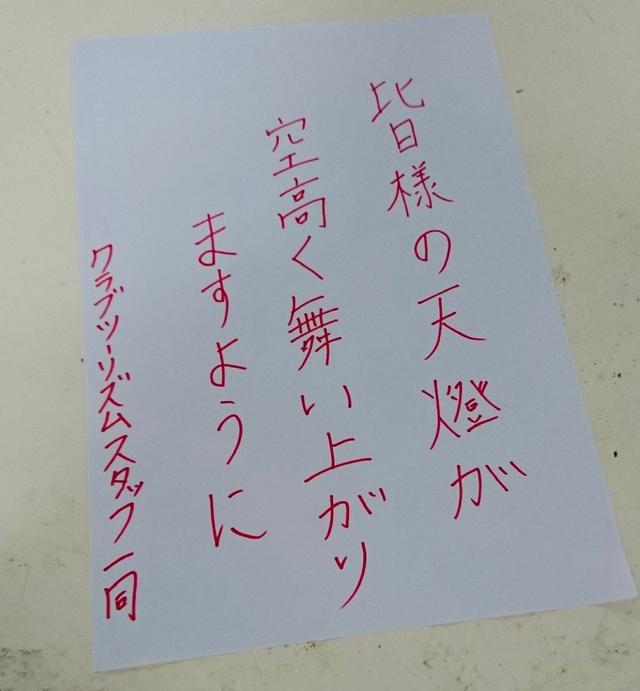 皆様の天燈が
空高く舞い上がり
ますように
クラブツーリズムスタッフ一同